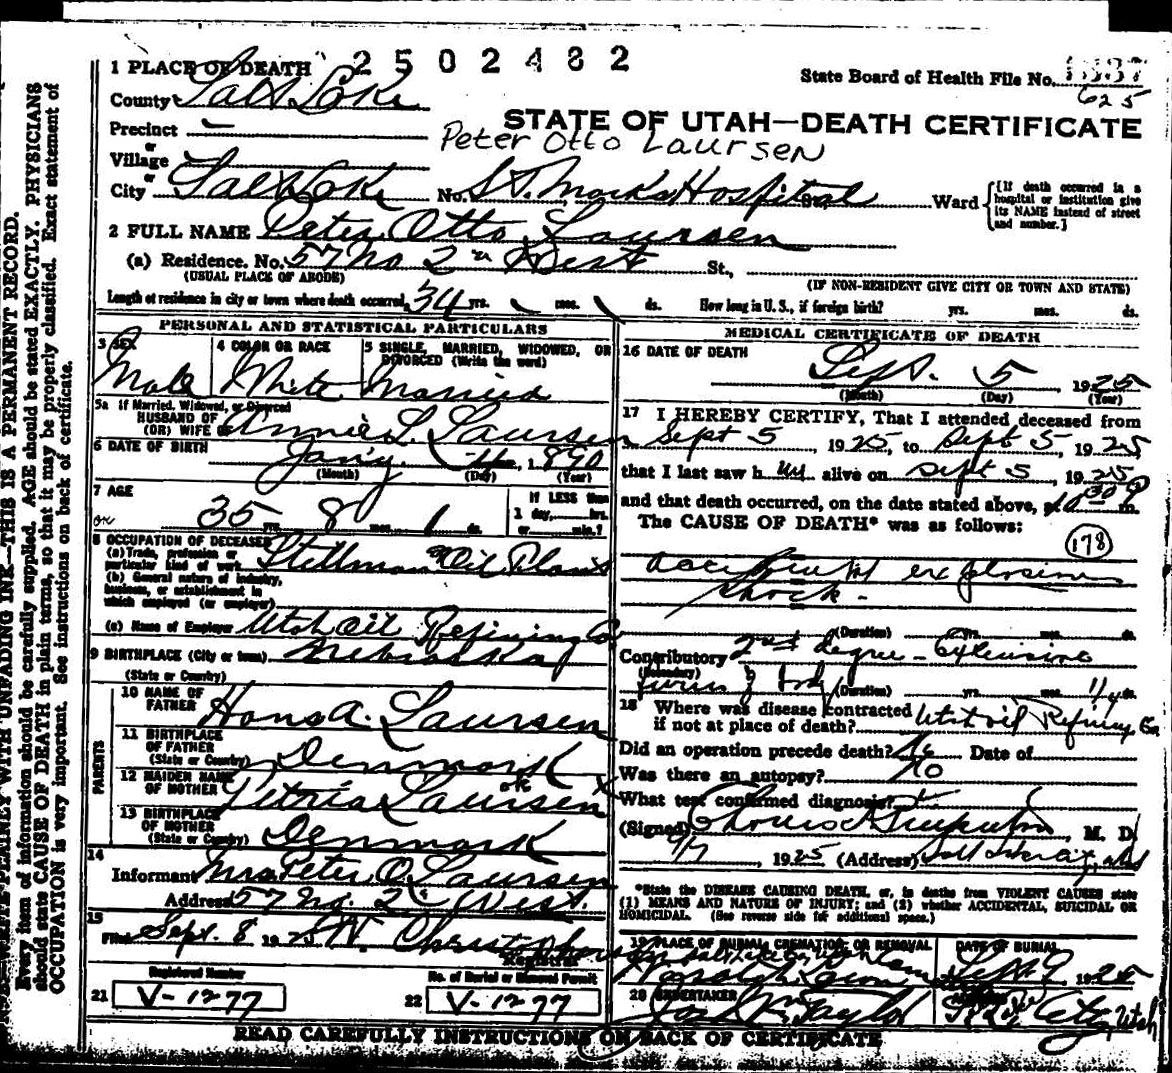 2502482
1 PLACE OF DEATH
State Board of Health File No.
County Salt Lake
625
STATE OF UTAH—DEATH CERTIFICATE
Precinct
Peter Otto Laursen
or
Village
or
City Salt Lake No. St. Marks Hospital Ward
{[If death occurred in a hospital or institution give its NAME instead of street and number.]
2 FULL NAME Peter Otto Laursen
(a) Residence. No. 57 No 2nd West St.,
(USUAL PLACE OF ABODE) (IF NON-RESIDENT GIVE CITY OR TOWN AND STATE)
Length of residence in city or town where death occurred 34 yrs. mos. ds. How long in U. S., if foreign birth? yrs. mos. ds.
PERSONAL AND STATISTICAL PARTICULARS
3 SEX 4 COLOR OR RACE 5 SINGLE, MARRIED, WIDOWED, OR DIVORCED (Write the word)
Male White Married
5a If Married, Widowed, or Divorced
HUSBAND OF
(OR) WIFE OF Annie L. Laursen
6 DATE OF BIRTH Jany 4 1890
(Month) (Day) (Year)
7 AGE
If LESS than
1 day, hrs.
or min.?
or 35 yrs. 8 mos. 1 ds.
8 OCCUPATION OF DECEASED
(a) Trade, profession or
particular kind of work Stillman Oil Plant
(b) General nature of industry,
business, or establishment in
which employed (or employer)
(c) Name of Employer Utah Oil Refining Co
9 BIRTHPLACE (City or town) Nebraska
(State or Country)
PARENTS
10 NAME OF
FATHER Hans A. Laursen
11 BIRTHPLACE
OF FATHER
(State or Country) Denmark
12 MAIDEN NAME
OF MOTHER Petria Laursen ok
13 BIRTHPLACE
OF MOTHER
(State or Country) Denmark
14
Informant Mrs Peter O. Laursen
Address 57 No. 2d West.
15
Filed Sept. 8 1925
Registrar
Registered Number No. of Burial or Removal Permit
21 V-1277 22 V-1277
MEDICAL CERTIFICATE OF DEATH
16 DATE OF DEATH
Sept. 5, 1925
(Month) (Day) (Year)
17 I HEREBY CERTIFY, That I attended deceased from
Sept 5, 1925, to Sept 5, 1925
that I last saw him alive on Sept 5, 1925
and that death occurred, on the date stated above, at 10 30 P m.
The CAUSE OF DEATH* was as follows:
178
accidental explosion
shock.
(Duration) yrs. mos. ds.
Contributory 2nd degree - Extensive
(Secondary)
burns of body (Duration) yrs. mos. 1/4 ds.
18 Where was disease contracted
if not at place of death? Utah oil Refining Co
Did an operation precede death? No Date of
Was there an autopsy? No
What test confirmed diagnosis?
(Signed) , M. D.
9/7, 1925 (Address) Salt Lake City, Utah
*State the DISEASE CAUSING DEATH, or, in deaths from VIOLENT CAUSES state
(1) MEANS AND NATURE OF INJURY; and (2) whether ACCIDENTAL, SUICIDAL OR
HOMICIDAL. (See reverse side for additional space.)
19 PLACE OF BURIAL, CREMATION, OR REMOVAL DATE OF BURIAL
Sept. 9 1925
20 UNDERTAKER
Taylor City, Utah
READ CAREFULLY INSTRUCTIONS ON BACK OF CERTIFICATE
WRITE PLAINLY WITH UNFADING INK—THIS IS A PERMANENT RECORD.
Every item of information should be carefully supplied. AGE should be stated EXACTLY. PHYSICIANS
should state CAUSE OF DEATH in plain terms, so that it may be properly classified. Exact statement of
OCCUPATION is very important. See instructions on back of certificate.